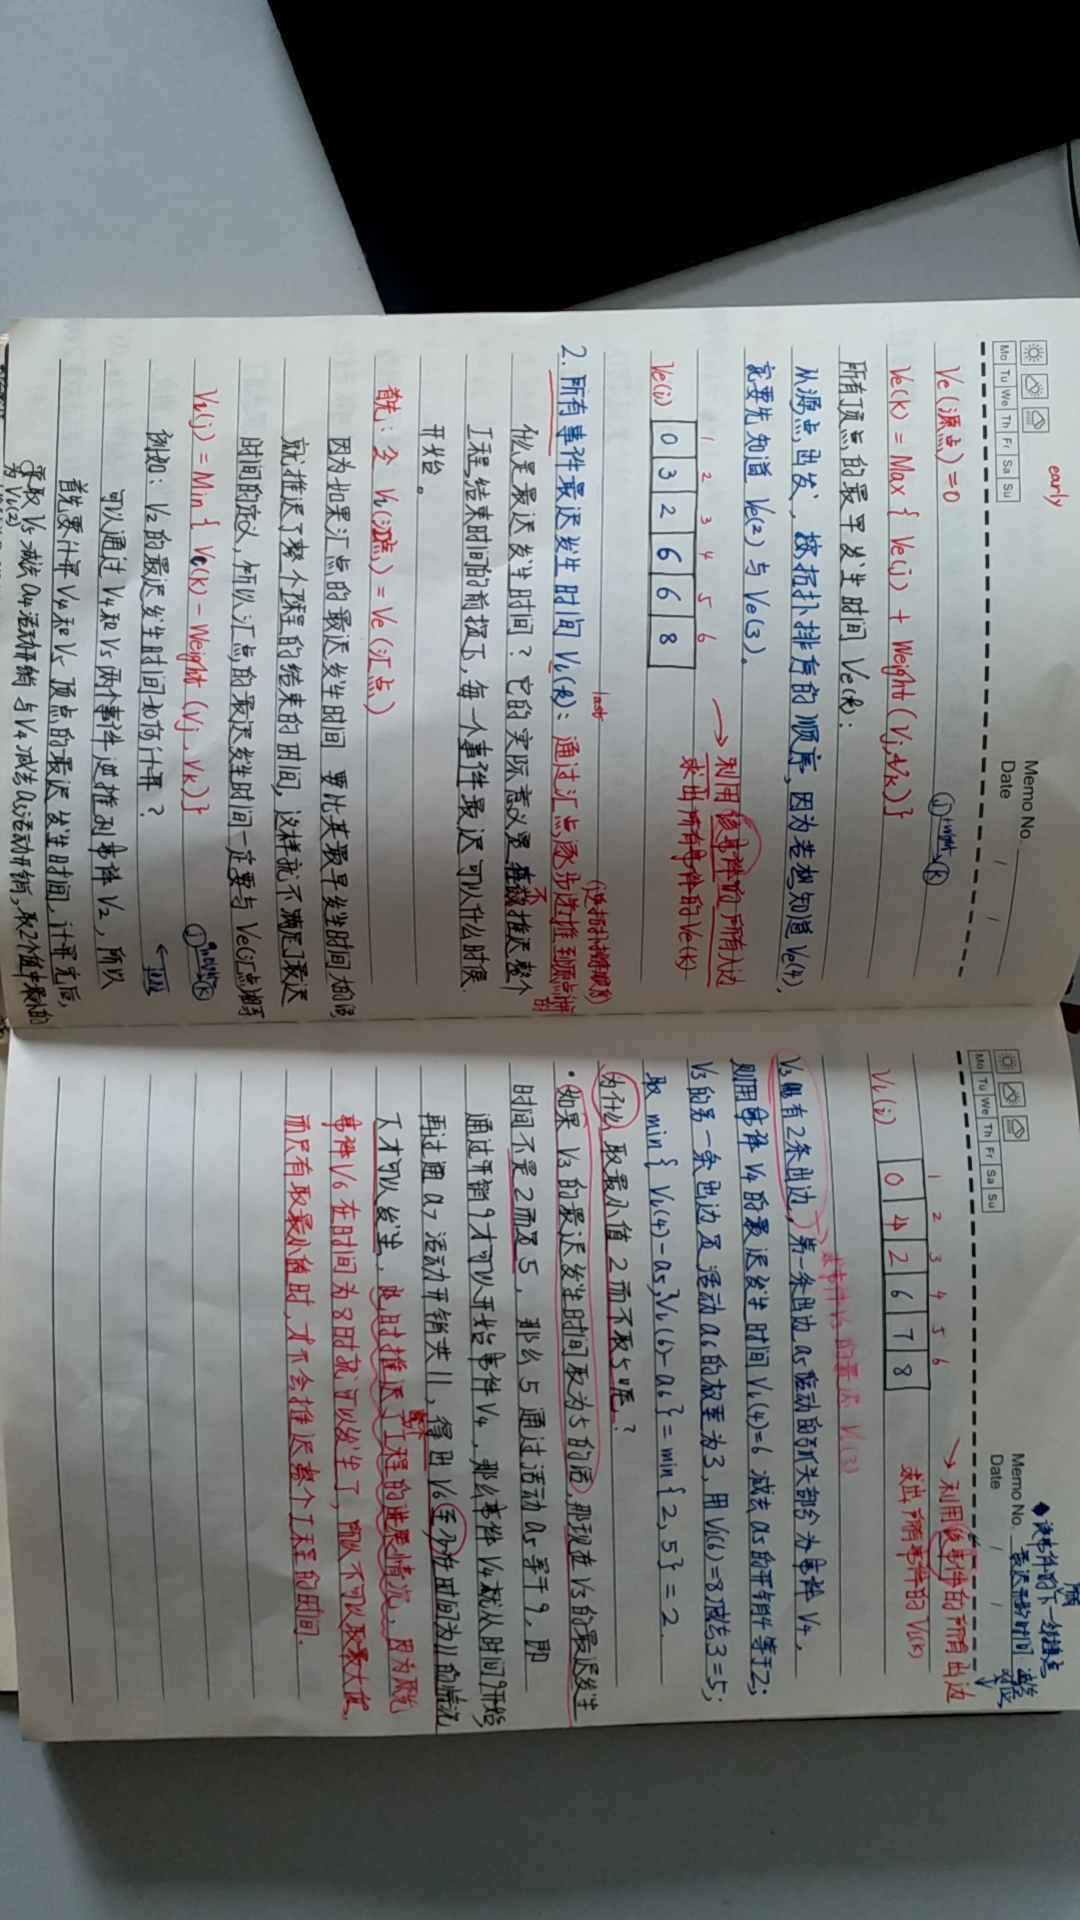 early
Memo No.
Mo Tu We Th Fr Sa Su
Date / /
Ve(源点)=0
Ve(k) = Max { Ve(j) + Weight (Vj, Vk) }
所有顶点的最早发生时间 Ve(k):
从源点出发，按拓扑排序的顺序，因为若想知道 Ve(4),
就要先知道 Ve(2) 与 Ve(3).
1 2 3 4 5 6
Ve(i) 0 3 2 6 6 8
→ 利用该事件的所有入边
求出所有事件的Ve(k)
last
(逆拓扑排序)
2. 所有事件最迟发生时间 Vl(k): 通过汇点逐步逆推到源点
什么是最迟发生时间？它的实际意义是在不推迟整个
工程结束时间的前提下，每一个事件最迟可以什么时候
开始。
首先：令 Vl(汇点) = Ve(汇点)
因为如果汇点的最迟发生时间 要比其最早发生时间大的话
就推迟了整个工程的结束的时间，这样就不满足最迟
时间的定义，所以汇点的最迟发生时间一定要与Ve(汇点)
Vl(j) = Min { Vl(k) - Weight (Vj, Vk) }
例如：V2的最迟发生时间如何计算？
可以通过V4和V5两个事件逆推到事件V2，所以
首先要计算V4和V5顶点的最迟发生时间，计算完后，
要取V5减去a4活动开销与V4减去a3活动开销，取2个值中最小的
为Vl(2)
该事件的下一
最迟开始时间
Memo No.
Mo Tu We Th Fr Sa Su
Date / /
→ 利用该事件的所有出边
求出所有事件的Vl(k)
1 2 3 4 5 6
Vl(i) 0 4 2 6 7 8
求事件V3的最迟 Vl(3)
V3有2条出边，第一条出边a5活动的弧头部分为事件V4，
则用事件V4的最迟发生时间Vl(4)=6 减去a5的开销4等于2；
V3的另一条出边是活动a6的权重为3，用Vl(6)=8减去3=5；
取 min { Vl(4)-a5, Vl(6)-a6 } = min { 2, 5 } = 2.
为什么取最小值2而不取5呢？
· 如果V3的最迟发生时间取为5的话，那现在V3的最迟发生
时间不是2而是5，那么5通过活动a5等于9，即
通过开销9才可以开始事件V4，那么事件V4就从时间9开始
再过通a7活动开销共11，得出V6至少在时间为11的情况
下才可以发生，此时推迟了整个工程的进展情况，因为原先
事件V6在时间为8时就可以发生了，所以不可以取最大值，
而只有取最小值时，才不会推迟整个工程的时间.